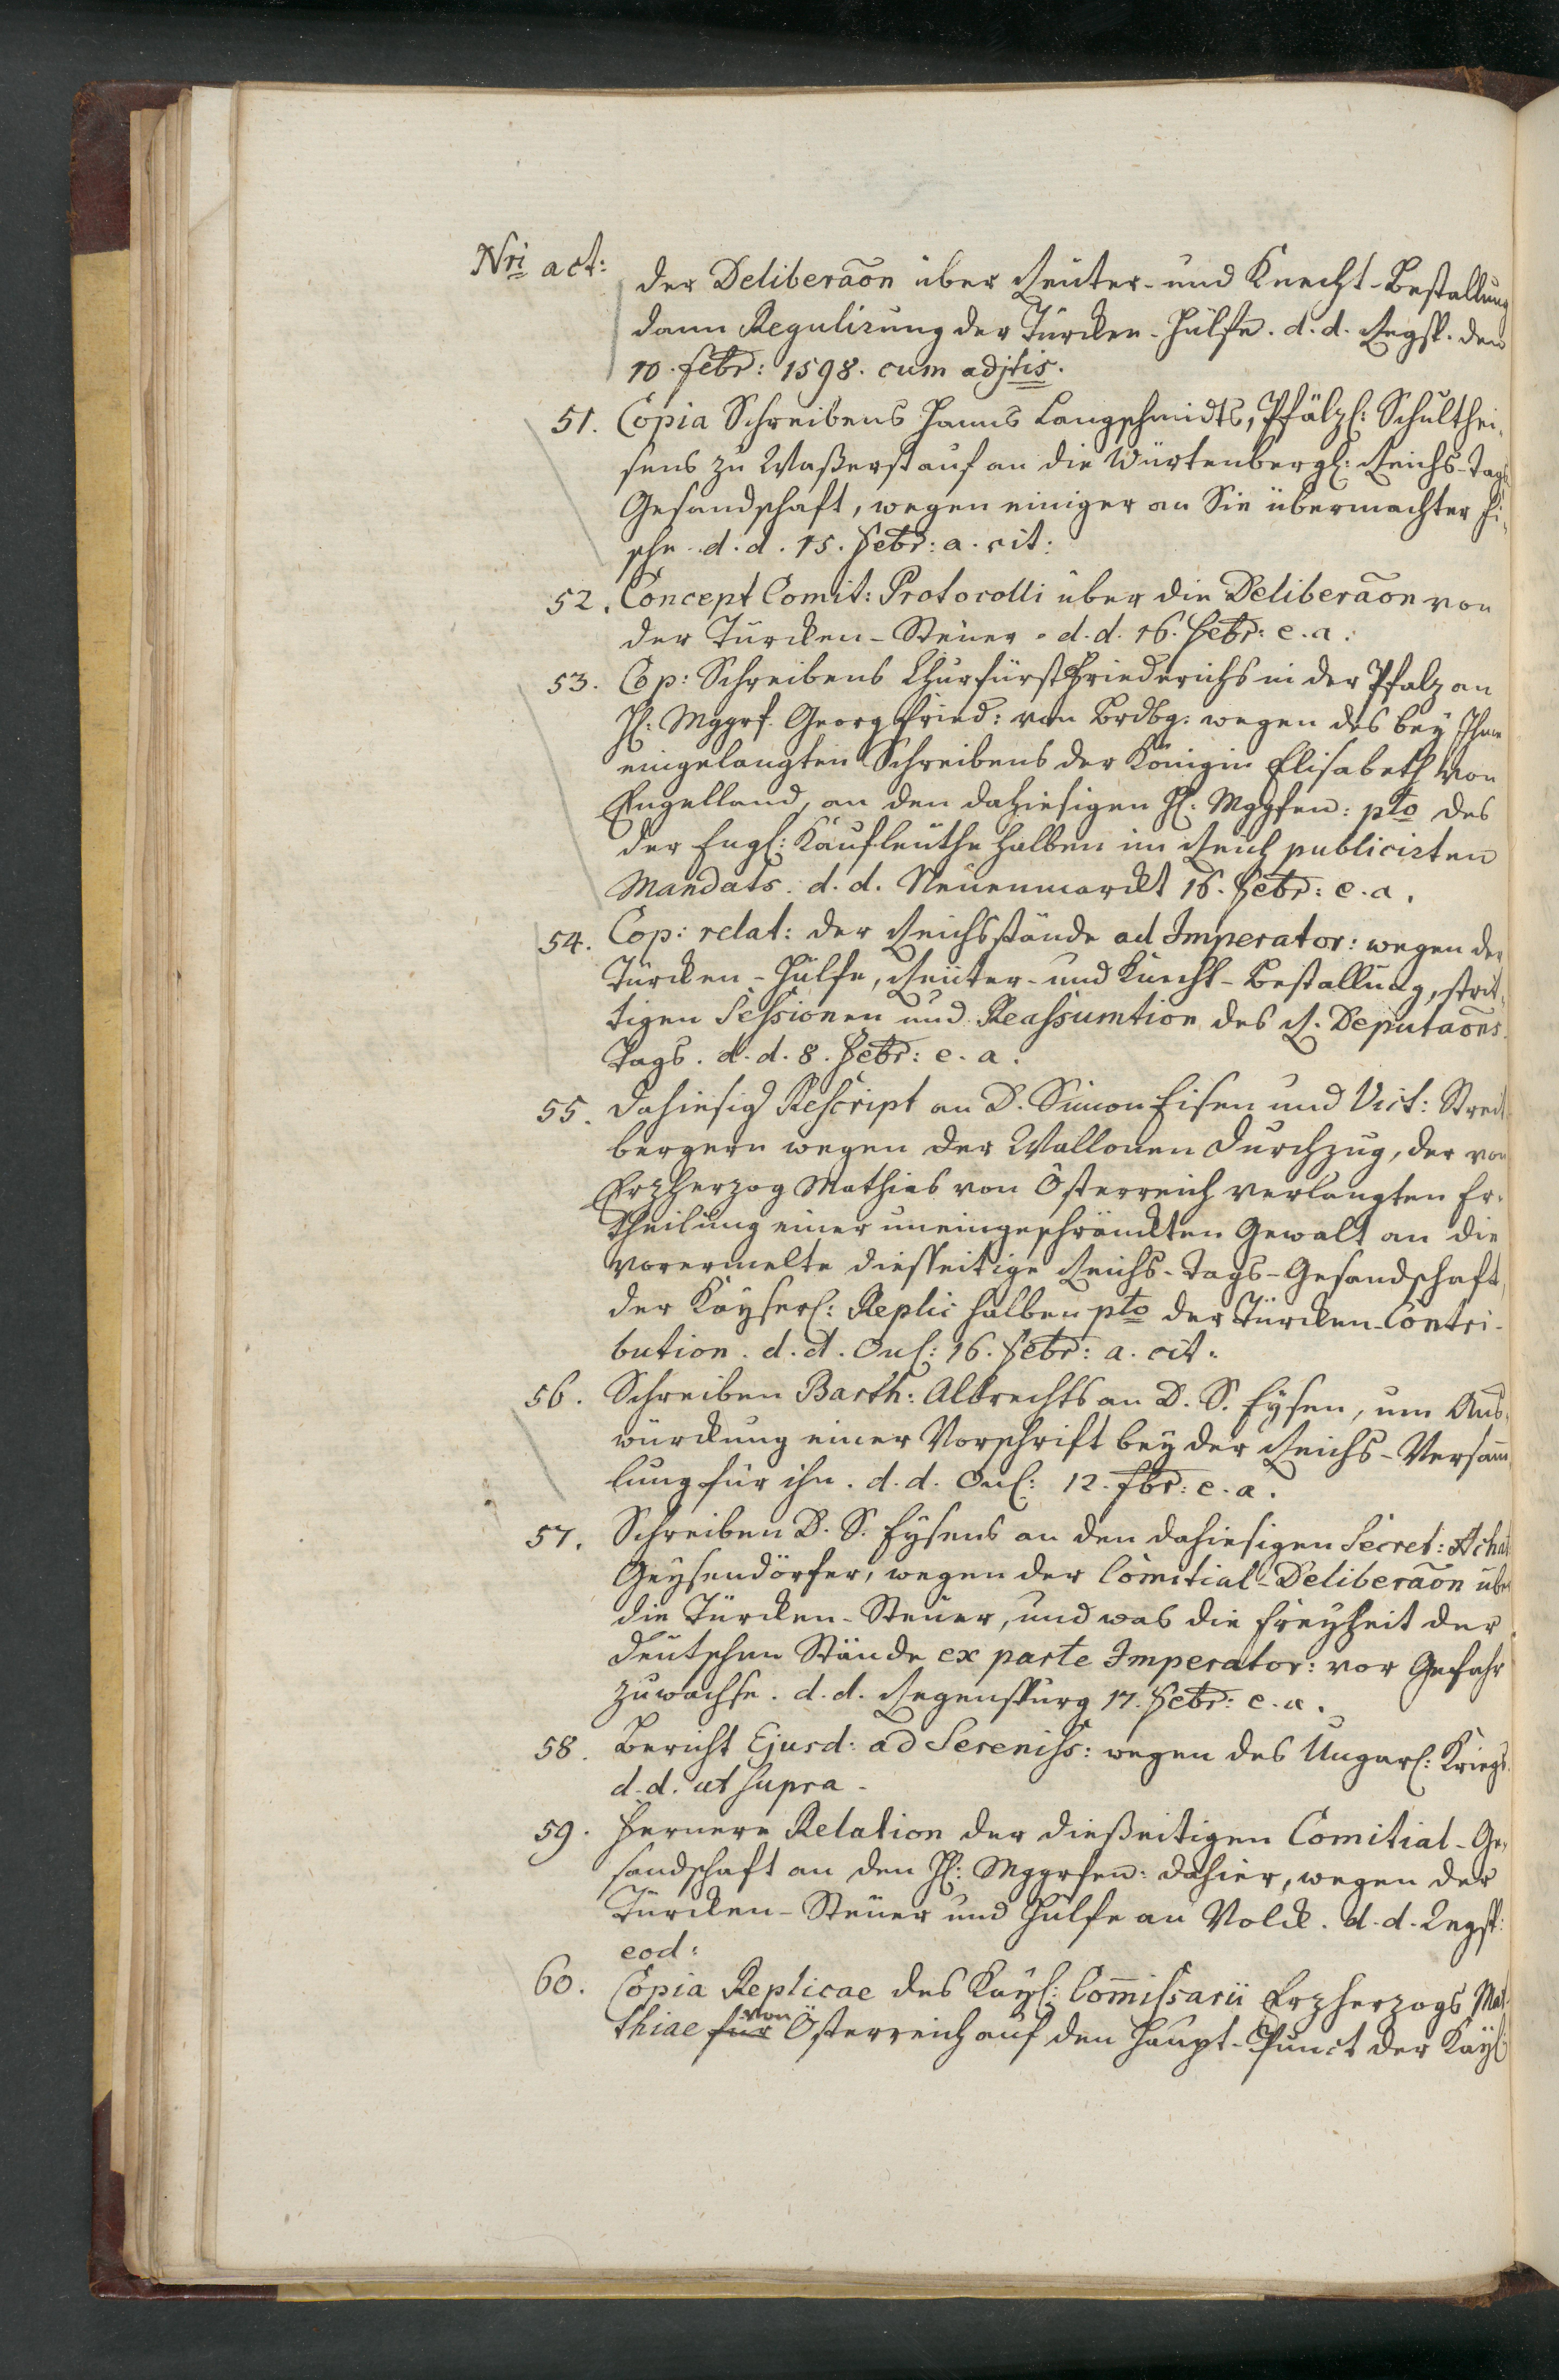 Nri act:
der Deliberãon über Reuter- und Knecht-Bestallung
dann Regulirung der Türcken-Hülfe. d. d. Regsp. den
10. Febr: 1598. cum adjtis.
51. Copia Schreibens Hanns Langschmidts, Pfälzl: Schulthei-
sens zu Waßerstauf an die Würtenbergl: Reichs-Tags
Gesandschaft, wegen einiger an Sie übermachter Fi-
sche. d. d. 15. Febr: a. cit:
52. Concept Comit: Protocolli über die Deliberãon von
der Türcken-Steuer. d. d. 16. Febr: e. a.
53. Cop: Schreibens Churfürst Friederichs in der Pfalz an
H: Mggrf. Georg Fried: von Brdbg: wegen des bey Ihm
eingelangten Schreibens der Königin Elisabeth von
Engelland, an den dahiesigen H: Mggfen: pto des
der Engl: Kaufleuthe halben im Reich publicirten
Mandats. d. d. Neuenmarckt 16. Febr: e. a.
54. Cop: relat: der Reichsstände ad Imperator: wegen der
Türcken-Hülfe, Reuter- und Knecht-Bestallung, strit-
tigen Sessionen und Reassumtion des R. Deputaõns
Tags. d. d. 8. Febr: e. a.
55. Dahiesig Rescript an D. Simon Eisen und Vict: Streit
bergern wegen der Wallonen Durchzug, der von
Erzherzog Mathias von Österreich verlangten Er-
theilung einer uneingeschränckten Gewalt an die
vorermelte diesseitige Reichs-Tags-Gesandschaft,
der Kayserl: Replic halben pto der Türcken-Contri-
bution. d. d. Onl: 16. Febr: a. cit:
56. Schreiben Barth: Albrechts an D. S. Eysen, um Aus-
würckung einer Vorschrift bey der Reichs-Versam̄
lung für ihn. d. d. Onl: 12. fbr: e. a.
57. Schreiben D. S. Eysens an den dahiesigen Secret: Achat
Geysendörfer, wegen der Comitial-Deliberãon über
die Türcken-Steuer, und was die Freyheit der
deutschen Stände ex parte Imperator: vor Gefahr
zuwachse. d. d. Regenspurg 17. Febr: e. a.
58. Bericht Ejusd: ad Sereniss: wegen des Ungarl: Kriegs.
d. d. ut supra.
59. Fernere Relation der dießeitigen Comitial-Ge-
sandschaft an den H: Mggrfen: dahier, wegen der
Türcken-Steuer und Hülfe an Volck. d. d. Regsp:
eod:
60. Copia Replicae des Kayl: Com̄issarii Erzherzogs Mat-
thiae für von Österreich auf den Haupt-Punct der Kayl